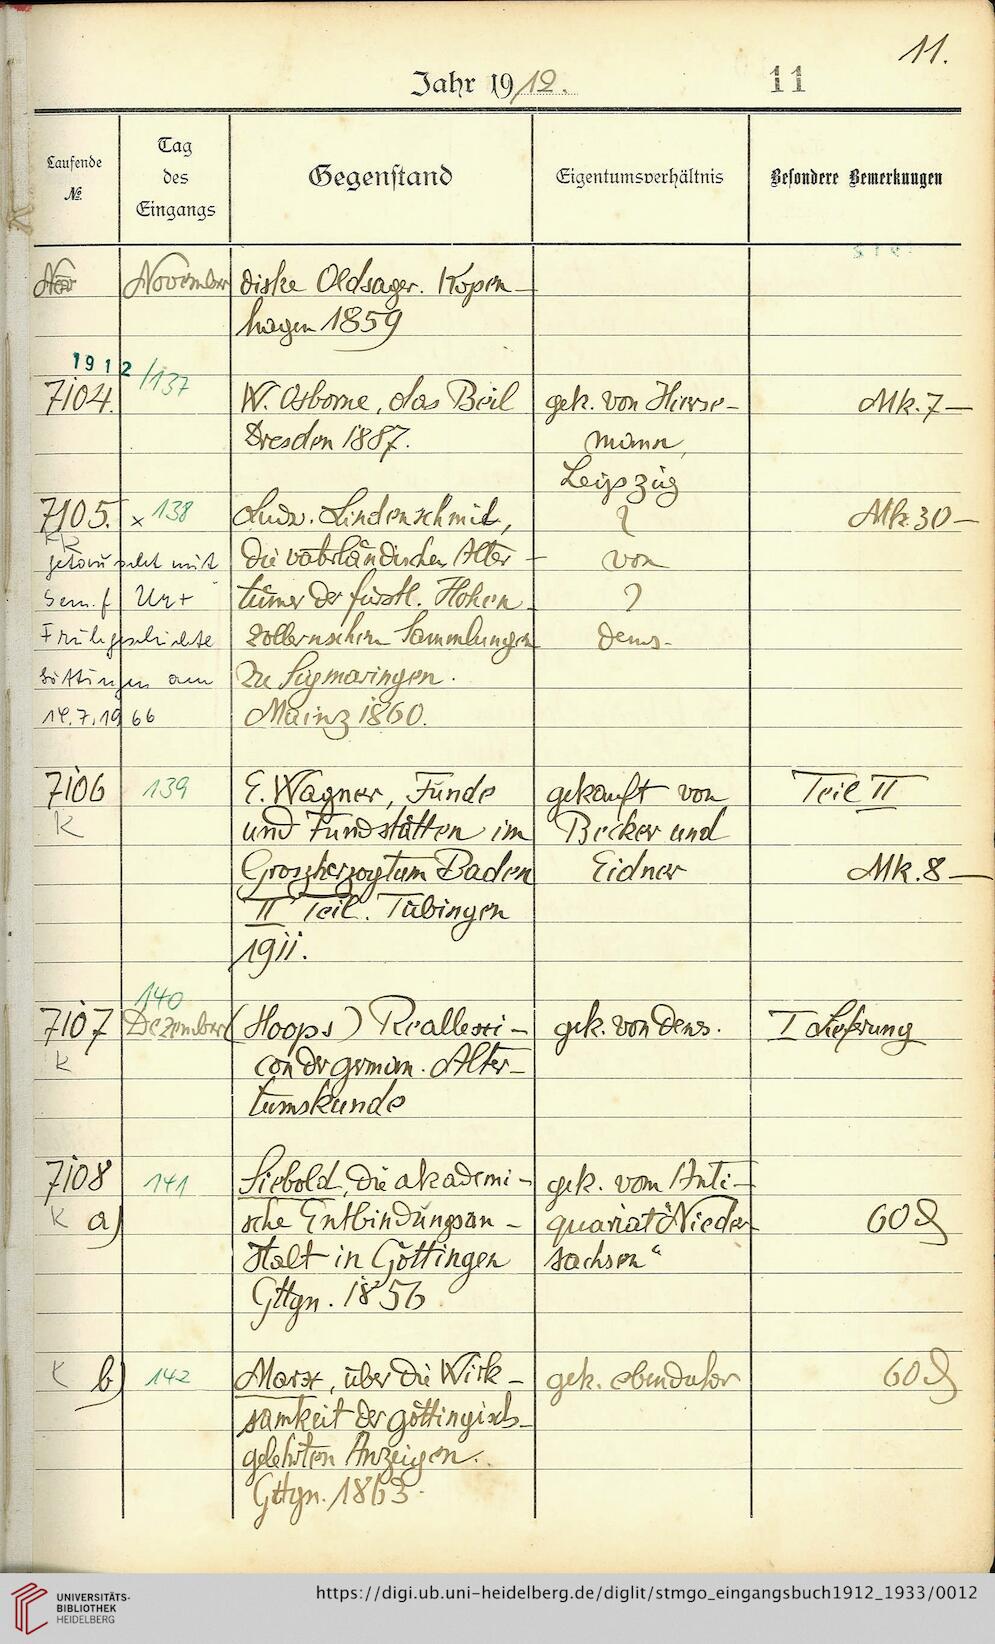 11.
Jahr 1912.
11
Laufende
No.
Tag
des
Eingangs
Gegenstand
Eigentumsverhältnis
Besondere Bemerkungen
November diske Oldsager. Kopen-
hagen 1859
1912/137
7104. W. Osborne, das Beil gek. von Hierse- Mk. 7—
Dresden 1887. mann,
Leipzig
7105. x 138 Ludw. Lindenschmit, ? Mk. 30—
K
getauscht mit die vaterländischen Alter- von
Sem. f Ur + tümer der fürstl. Hohen- ?
Frühgeschichte zollernschen Sammlungen dems.
Göttingen am zu Sigmaringen.
14.7.1966 Mainz 1860.
7106 139 E. Wagner, Funde gekauft von Teil II
K und Fundstätten im Becker und
Groszherzogtum Baden Eidner Mk. 8—
II Teil. Tübingen
1911.
140
7107 Dezember (Hoops) Reallexi- gek. von dems. I Lieferung
K con der german. Alter-
tumskunde
7108 141 Siebold, die akademi- gek. vom Anti-
K a) sche Entbindungsan- quariat „Nieder- 60 ₰
stalt in Göttingen sachsen“
Gttgn. 1856
K b) 142 Marx, über die Wirk- gek. ebendaher 60 ₰
samkeit der göttingisch-
gelehrten Anzeigen.
Gttgn. 1863.
UNIVERSITÄTS-
BIBLIOTHEK
HEIDELBERG
https://digi.ub.uni-heidelberg.de/diglit/stmgo_eingangsbuch1912_1933/0012